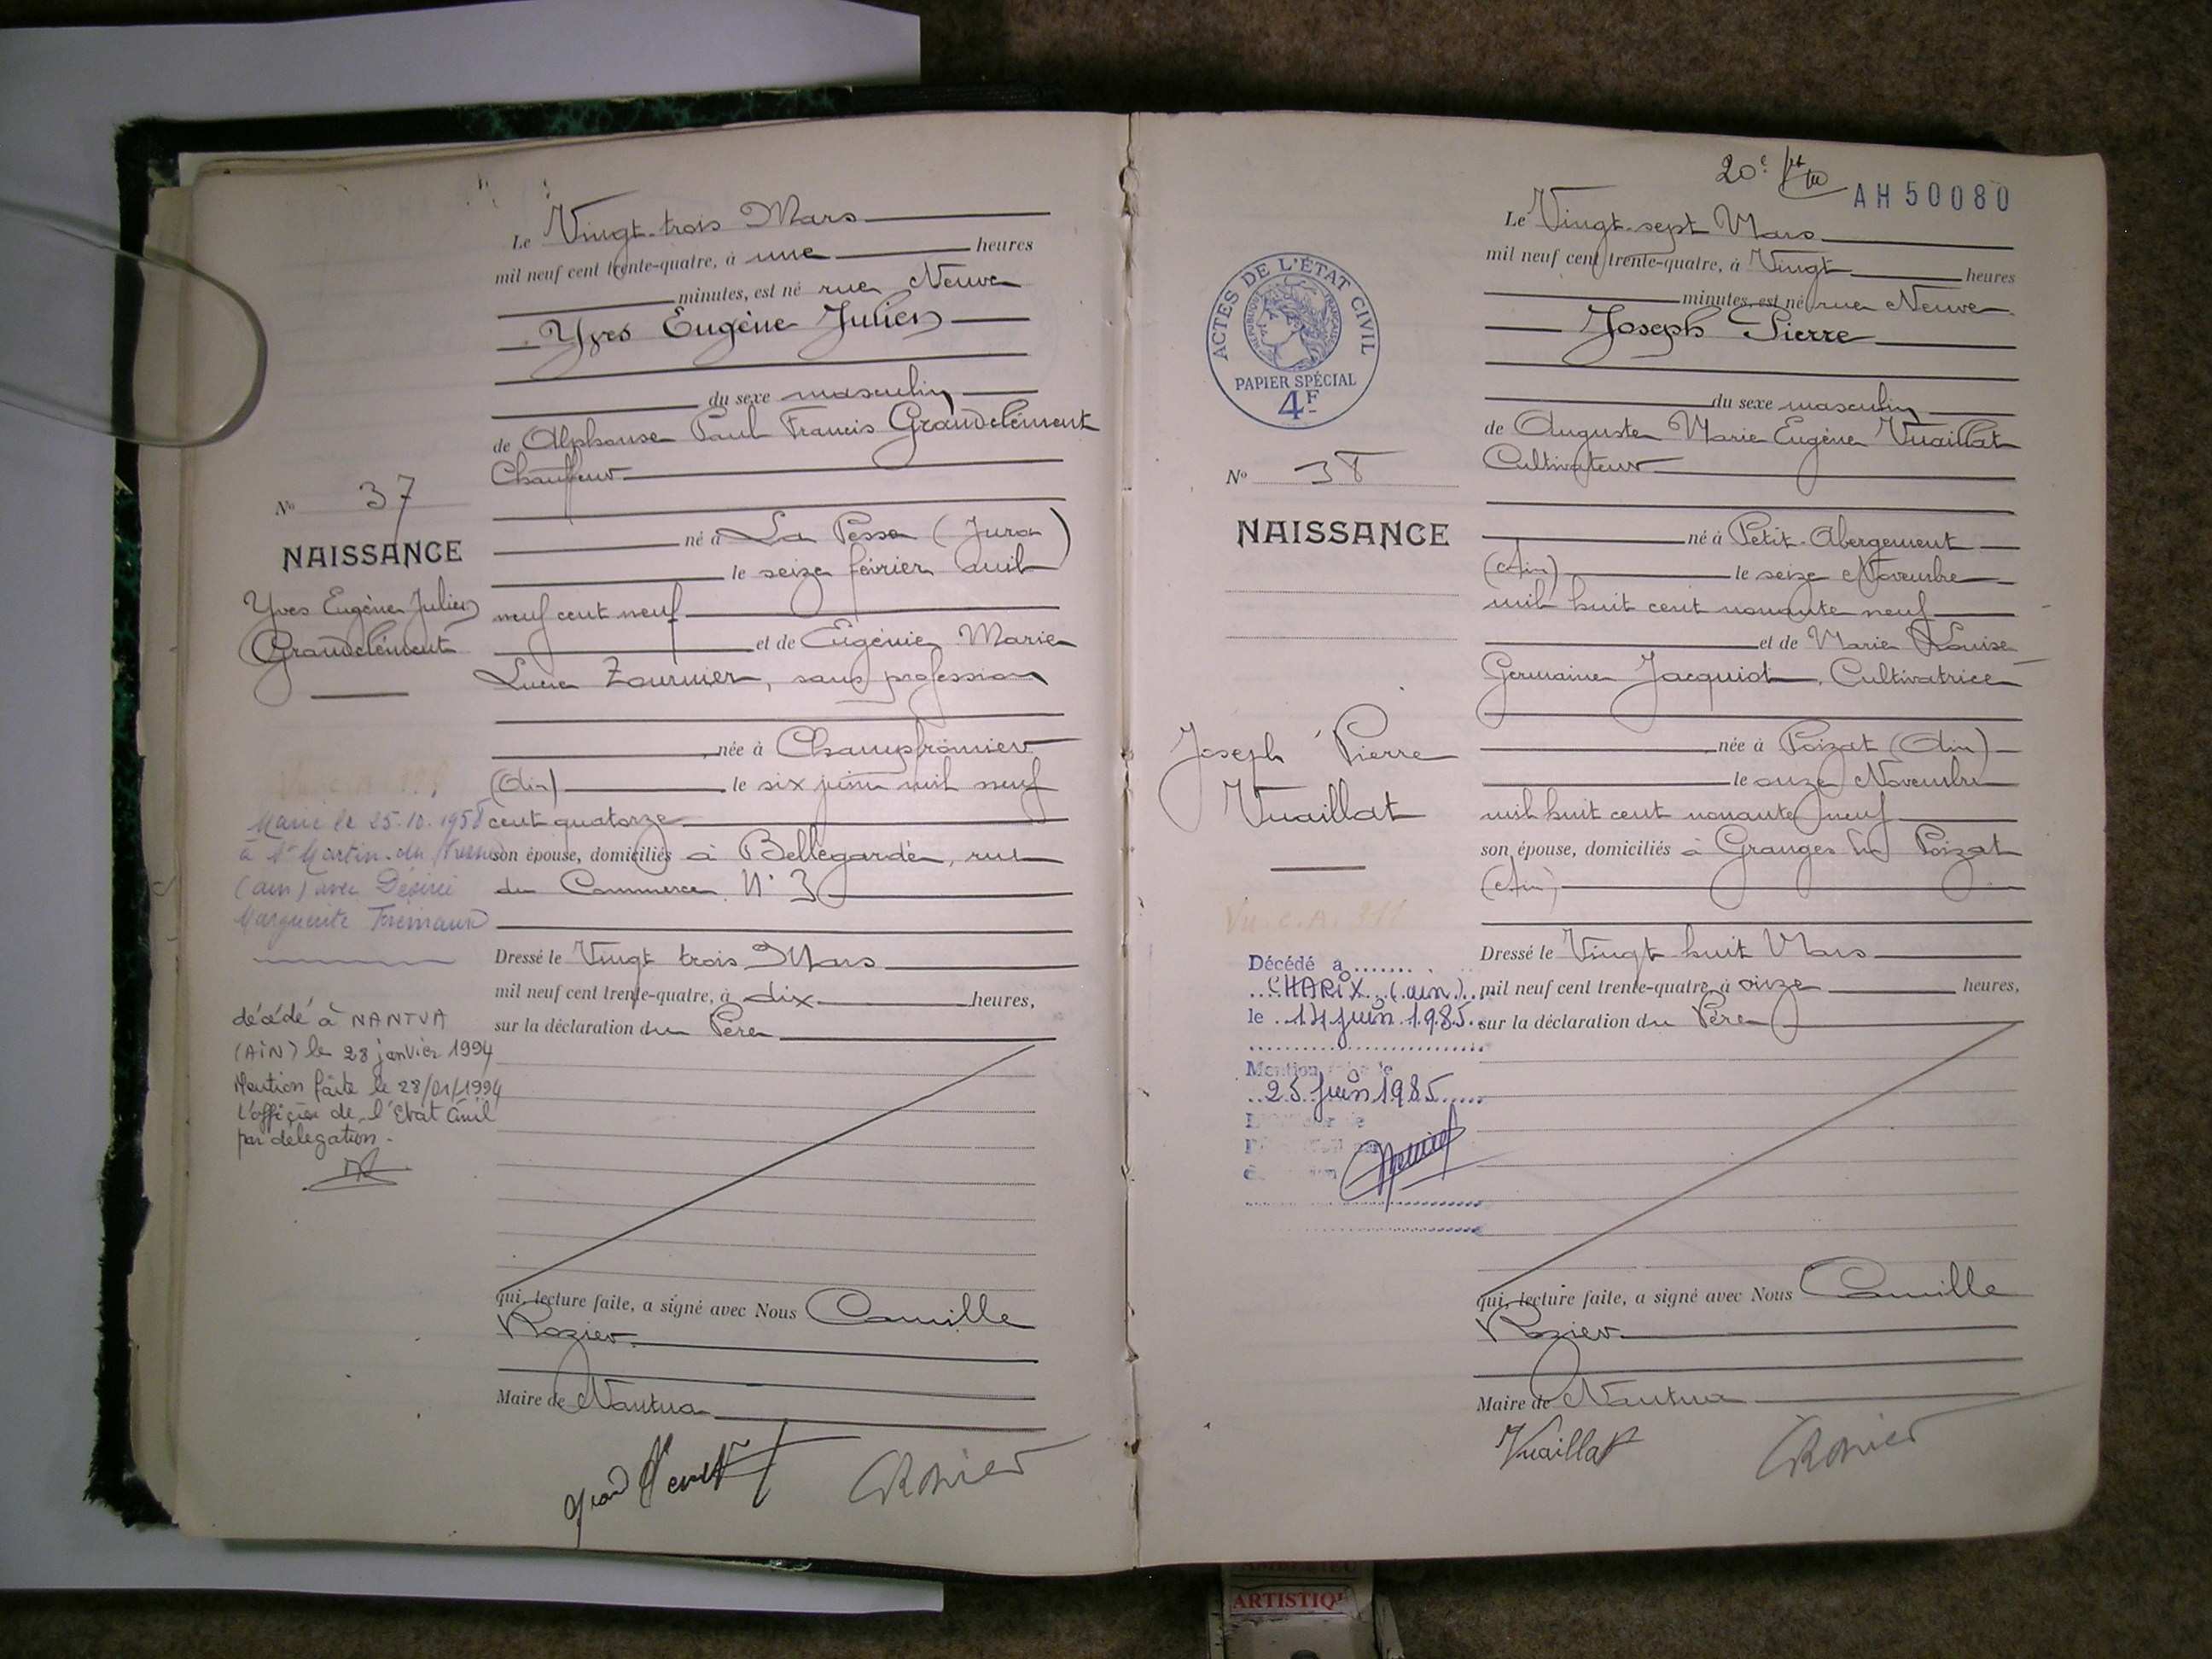 Le Vingt-trois Mars
mil neuf cent trente-quatre, à une heures
minutes, est né rue Neuve
Yves Eugène Julien
du sexe masculin
de Alphonse Paul Francis Grandclément
Chauffeur
né à La Pesse (Jura)
le seize février mil
neuf cent neuf
et de Eugénie Marie
Lucie Tournier, sans profession
née à Champfromier
(Ain) le six juin mil neuf
cent quatorze
son épouse, domiciliés à Bellegarde, rue
du Commerce N° 3
Dressé le Vingt trois Mars
mil neuf cent trente-quatre, à dix heures,
sur la déclaration du Père
qui, lecture faite, a signé avec Nous Camille
Rozier
Maire de Nantua
Grandclément
CRozier
No 37
NAISSANCE
Yves Eugène Julien
Grandclément
Marié le 25.10.1958
à St Martin-du Fresne
(ain) avec Désirée
Marguerite
décédé à NANTUA
(AIN) le 28 janvier 1994
Mention faite le 28/01/1994
L'officier de l'Etat Civil
par délégation.
20e
AH 50080
Le Vingt-sept Mars
mil neuf cent trente-quatre, à Vingt heures
minutes, est né rue Neuve
Joseph Pierre
du sexe masculin
de Auguste Marie Eugène Vuaillat
Cultivateur
né à Petit-Abergement
(Ain) le seize Novembre
mil huit cent nonante neuf
et de Marie Louise
Germaine Jacquiot, Cultivatrice
née à Poizat (Ain)
le onze Novembre
mil huit cent nonante neuf
son épouse, domiciliés à Granges du Poizat
(Ain)
Dressé le Vingt huit Mars
mil neuf cent trente-quatre, à onze heures,
sur la déclaration du Père
qui, lecture faite, a signé avec Nous Camille
Rozier
Maire de Nantua
Vuaillat
CRozier
ACTES DE L'ÉTAT CIVIL
RÉPUBLIQUE FRANÇAISE
PAPIER SPÉCIAL
4F
No 38
NAISSANCE
Joseph Pierre
Vuaillat
Vu. C.A.
Décédé à
CHARIX (ain)
le 14 juin 1985
Mention faite le
25 juin 1985
ARTISTIQ